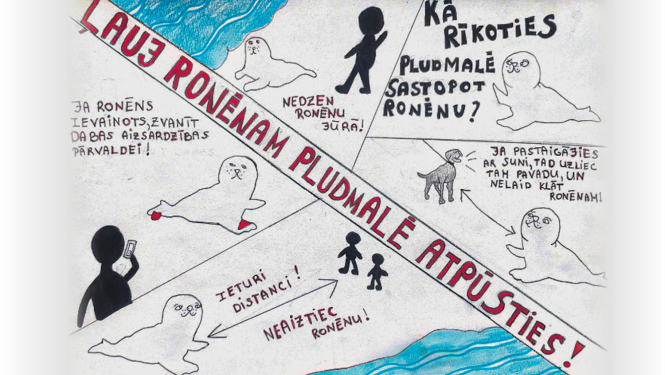 ĻAUJ RONĒNAM PLUDMALĒ ATPŪSTIES!
KĀ
RĪKOTIES
PLUDMALĒ
SASTOPOT
RONĒNU?
NEDZEN
RONĒNU
JŪRĀ!
JA RONĒNS
IEVAINOTS, ZVANĪT
DABAS AIZSARDZĪBAS
PĀRVALDEI!
JA PASTAIGĀJIES
AR SUNI, TAD UZLIEC
TAM PAVADU, UN
NELAID KLĀT
RONĒNAM!
IETURI
DISTANCI!
NEAIZTIEC
RONĒNU!